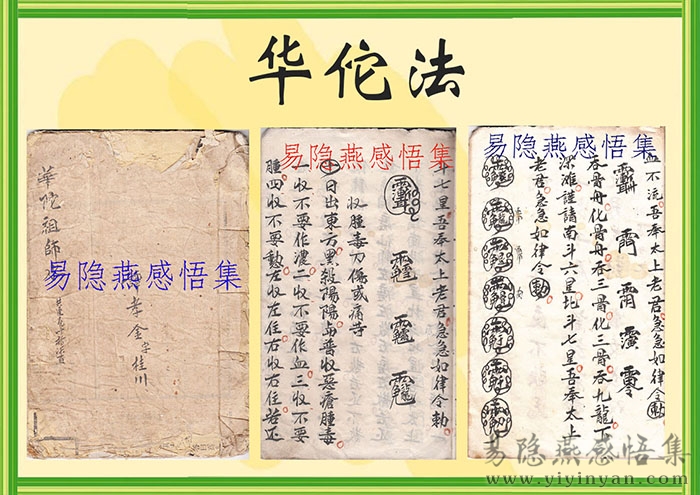 华佗法
華陀祖師
李金
字桂川
易隐燕感悟集
斗七星吾奉太上老君急急如律令勅
收腫毒刀傷或痛等
日出東方黑殺陽陽与普收惡瘡腫毒
一收不要作濃二收不要作血三收不要
腫四收不要左收左住右收右住若还
易隐燕感悟集
血不流吾奉太上老君急急如律令勅
吞骨舟化骨舟吞三骨化三骨吞九龍下
深滩謹請南斗六星北斗七星吾奉太上
老君急急如律令勅
易隐燕感悟集
易隐燕感悟集
www.yiyinyan.com